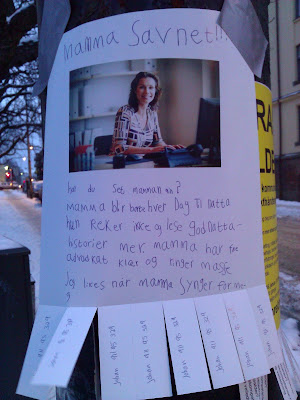 Mamma Savnet!!!
har du Sett mamman min?
Mamma blir borte hver Dag Til natta
hun Reker ikke og lese god natta-
historier mer. mamma har fine
advokat klær og ringer masse
Jeg likes når mamma Synger for meg
Johan 411 95 329
Johan 411 95 329
Johan 411 95 329
Johan 411 95 329
Johan 411 95 329